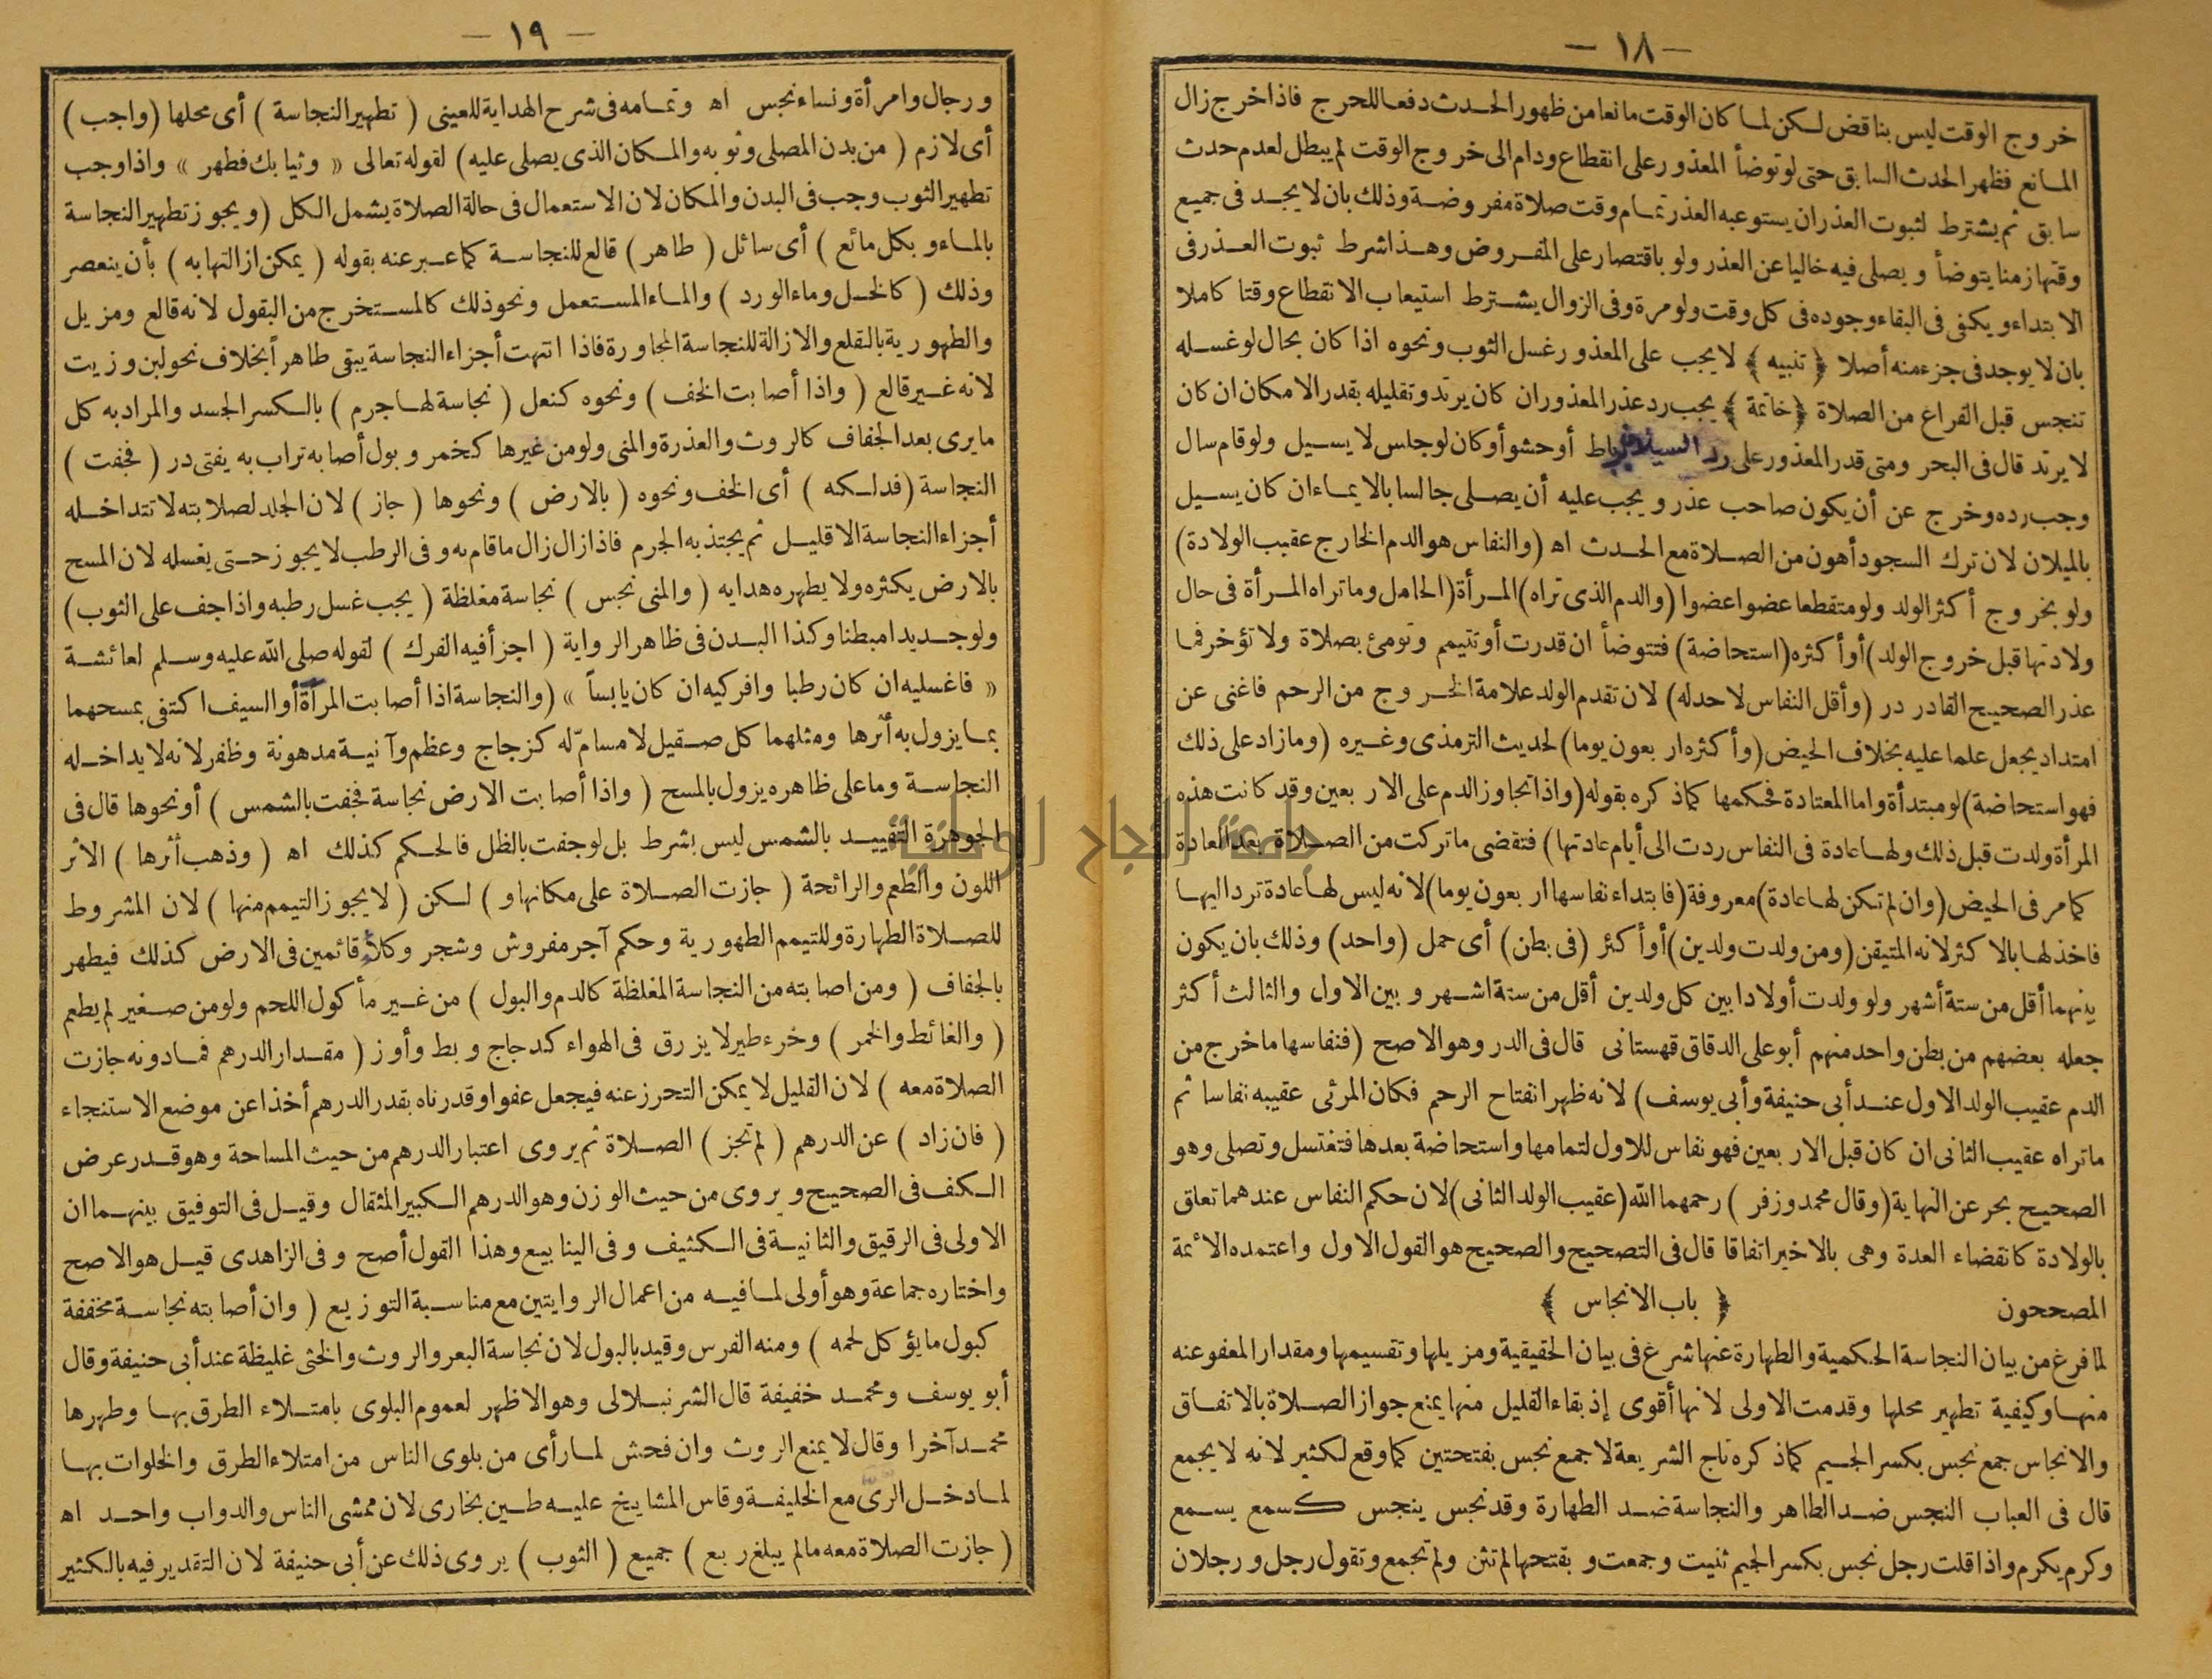 — ١٨ —
خروج الوقت ليس بناقض لكن لما كان الوقت مانعا من ظهور الحدث دفعا للحرج فاذا خرج زال
المانع فظهر الحدث السابق حتى لو توضأ المعذور على انقطاع ودام الى خروج الوقت لم يبطل لعدم حدث
سابق ثم يشترط لثبوت العذر ان يستوعبه العذر تمام وقت صلاة مفروضة وذلك بان لا يجد فى جميع
وقتها زمنا يتوضأ ويصلى فيه خاليا عن العذر ولو باقتصار على المفروض وهذا شرط ثبوت العذر فى
الابتداء ويكفى فى البقاء وجوده فى كل وقت ولو مرة وفى الزوال يشترط استيعاب الانقطاع وقتا كاملا
بان لا يوجد فى جزء منه أصلا ﴿ تنبيه ﴾ لا يجب على المعذور غسل الثوب ونحوه اذا كان بحال لو غسله
تنجس قبل الفراغ من الصلاة ﴿ خاتمة ﴾ يجب رد عذر المعذور ان كان يرتد وتقليله بقدر الامكان ان كان
لا يرتد قال فى البحر ومتى قدر المعذور على رد السيلان برباط أو حشو أو كان لو جلس لا يسيل ولو قام سال
وجب رده وخرج عن أن يكون صاحب عذر ويجب عليه أن يصلى جالسا بالايماء ان كان يسيل
بالميلان لان ترك السجود أهون من الصلاة مع الحدث اه (والنفاس هو الدم الخارج عقيب الولادة)
ولو بخروج أكثر الولد ولو متقطعا عضوا عضوا (والدم الذى تراه) المرأة (الحامل وما تراه المرأة فى حال
ولادتها قبل خروج الولد) أو أكثره (استحاضة) فتتوضأ ان قدرت أو تتيمم وتومئ بصلاة ولا تؤخر فما
عذر الصحيح القادر در (وأقل النفاس لا حد له) لان تقدم الولد علامة الخروج من الرحم فاغنى عن
امتداد يجعل علما عليه بخلاف الحيض (وأكثره أربعون يوما) لحديث الترمذى وغيره (وما زاد على ذلك
فهو استحاضة) لو مبتدأة واما المعتادة فحكمها كما ذكره بقوله (واذا تجاوز الدم على الاربعين وقد كانت هذه
المرأة ولدت قبل ذلك ولها عادة فى النفاس ردت الى أيام عادتها) فتقضى ما تركت من الصلاة بعد العادة
كما مر فى الحيض (وان لم تكن لها عادة) معروفة (فابتداء نفاسها اربعون يوما) لانه ليس لها عادة ترد اليها
فاخذ لها بالاكثر لانه المتيقن (ومن ولدت ولدين) أو أكثر (فى بطن) أى حمل (واحد) وذلك بان يكون
بينهما أقل من ستة أشهر ولو ولدت أولادا بين كل ولدين أقل من ستة اشهر وبين الاول والثالث أكثر
جعله بعضهم من بطن واحد منهم أبو على الدقاق قهستانى قال فى الدر وهو الاصح (فنفاسها ما خرج من
الدم عقيب الولد الاول عند أبى حنيفة وأبى يوسف) لانه ظهر انفتاح الرحم فكان المرئى عقيبه نفاسا ثم
ما تراه عقيب الثانى ان كان قبل الاربعين فهو نفاس للاول لتمامها واستحاضة بعدها فتغتسل وتصلى وهو
الصحيح بحر عن النهاية (وقال محمد وزفر) رحمهما الله (عقيب الولد الثانى) لان حكم النفاس عندهما تعلق
بالولادة كانقضاء العدة وهى بالاخير اتفاقا قال فى التصحيح والصحيح هو القول الاول واعتمده الائمة
المصححون ﴿ باب الانجاس ﴾
لما فرغ من بيان النجاسة الحكمية والطهارة عنها شرع فى بيان الحقيقية ومزيلها وتقسيمها ومقدار المعفو عنه
منها وكيفية تطهير محلها وقدمت الاولى لانها أقوى إذ بقاء القليل منها يمنع جواز الصلاة بالاتفاق
والانجاس جمع نجس بكسر الجيم كما ذكره تاج الشريعة لا جمع نجس بفتحتين كما وقع لكثير لانه لا يجمع
قال فى العباب النجس ضد الطاهر والنجاسة ضد الطهارة وقد نجس ينجس كسمع يسمع
وكرم يكرم واذا قلت رجل نجس بكسر الجيم ثنيت وجمعت وبفتحها لم تثن ولم تجمع وتقول رجل ورجلان
— ١٩ —
ورجال وامرأة ونساء نجس اه وتمامه فى شرح الهداية للعينى (تطهير النجاسة) أى محلها (واجب)
أى لازم (من بدن المصلى وثوبه والمكان الذى يصلى عليه) لقوله تعالى « وثيابك فطهر » واذا وجب
تطهير الثوب وجب فى البدن والمكان لان الاستعمال فى حالة الصلاة يشمل الكل (ويجوز تطهير النجاسة
بالماء وبكل مائع) أى سائل (طاهر) قالع للنجاسة كما عبر عنه بقوله (يمكن ازالتها به) بأن ينعصر
وذلك (كالخل وماء الورد) والماء المستعمل ونحو ذلك كالمستخرج من البقول لانه قالع ومزيل
والطهورية بالقلع والازالة للنجاسة المجاورة فاذا انتهت أجزاء النجاسة يبقى طاهرا بخلاف نحو لبن وزيت
لانه غير قالع (واذا أصابت الخف) ونحوه كنعل (نجاسة لها جرم) بالكسر الجسد والمراد به كل
ما يرى بعد الجفاف كالروث والعذرة والمنى ولو من غيرها كخمر وبول أصابه تراب به يفتى در (فجفت)
النجاسة (فدلكه) أى الخف ونحوه (بالارض) ونحوها (جاز) لان الجلد لصلابته لا تتداخله
أجزاء النجاسة الا قليل ثم يجتذبه الجرم فاذا زال زال ما قام به وفى الرطب لا يجوز حتى يغسله لان المسح
بالارض يكثره ولا يطهره هدايه (والمنى نجس) نجاسة مغلظة (يجب غسل رطبه واذا جف على الثوب)
ولو جديدا مبطنا وكذا البدن فى ظاهر الرواية (اجزأ فيه الفرك) لقوله صلى الله عليه وسلم لعائشة
« فاغسليه ان كان رطبا وافركيه ان كان يابساً » (والنجاسة اذا أصابت المرآة أو السيف اكتفى بمسحهما
بما يزول به أثرها ومثلهما كل صقيل لا مسامّ له كزجاج وعظم وآنية مدهونة وظفر لانه لا يداخله
النجاسة وما على ظاهره يزول بالمسح (واذا أصابت الارض نجاسة فجفت بالشمس) أو نحوها قال فى
الجوهرة التقييد بالشمس ليس بشرط بل لو جفت بالظل فالحكم كذلك اه (وذهب أثرها) الاثر
اللون والطعم والرائحة (جازت الصلاة على مكانها و) لكن (لا يجوز التيمم منها) لان المشروط
للصلاة الطهارة وللتيمم الطهورية وحكم آجر مفروش وشجر وكلأ قائمين فى الارض كذلك فيطهر
بالجفاف (ومن اصابته من النجاسة المغلظة كالدم والبول) من غير مأكول اللحم ولو من صغير لم يطعم
(والغائط والخمر) وخرء طير لا يزرق فى الهواء كدجاج وبط وأوز (مقدار الدرهم فما دونه جازت
الصلاة معه) لان القليل لا يمكن التحرز عنه فيجعل عفوا وقدرناه بقدر الدرهم أخذا عن موضع الاستنجاء
(فان زاد) عن الدرهم (لم تجز) الصلاة ثم يروى اعتبار الدرهم من حيث المساحة وهو قدر عرض
الكف فى الصحيح ويروى من حيث الوزن وهو الدرهم الكبير المثقال وقيل فى التوفيق بينهما ان
الاولى فى الرقيق والثانية فى الكثيف وفى الينابيع وهذا القول أصح وفى الزاهدى قيل هو الاصح
واختاره جماعة وهو أولى لما فيه من اعمال الروايتين مع مناسبة التوزيع (وان أصابته نجاسة مخففة
كبول ما يؤكل لحمه) ومنه الفرس وقيد بالبول لان نجاسة البعر والروث والخثى غليظة عند أبى حنيفة وقال
أبو يوسف ومحمد خفيفة قال الشرنبلالى وهو الاظهر لعموم البلوى بامتلاء الطرق بها وطهرها
محمد آخرا وقال لا يمنع الروث وان فحش لما رأى من بلوى الناس من امتلاء الطرق والخلوات بها
لما دخل الرى مع الخليفة وقاس المشايخ عليه طين بخارى لان ممشى الناس والدواب واحد اه
(جازت الصلاة معه ما لم يبلغ ربع) جميع (الثوب) يروى ذلك عن أبى حنيفة لان التقدير فيه بالكثير
جامعة النجاح الوطنية